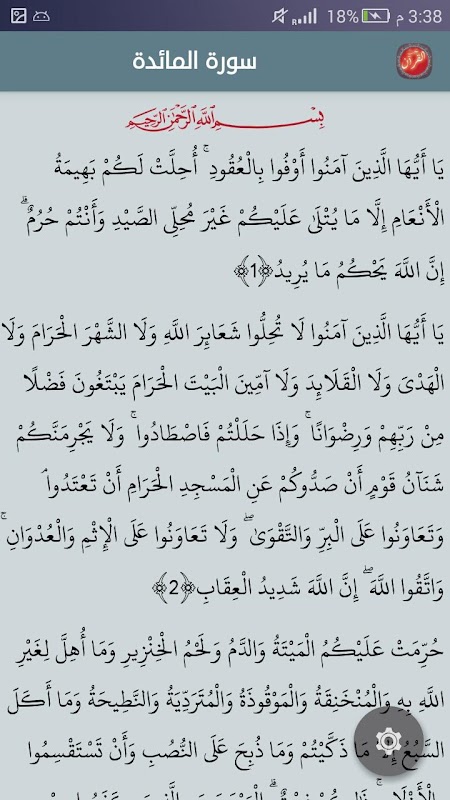 18% 3:38 م
سورة المائدة
القرآن
بِسْمِ اللَّهِ الرَّحْمَٰنِ الرَّحِيمِ
يَا أَيُّهَا الَّذِينَ آمَنُوا أَوْفُوا بِالْعُقُودِ ۚ أُحِلَّتْ لَكُمْ بَهِيمَةُ
الْأَنْعَامِ إِلَّا مَا يُتْلَىٰ عَلَيْكُمْ غَيْرَ مُحِلِّي الصَّيْدِ وَأَنْتُمْ حُرُمٌ ۗ
إِنَّ اللَّهَ يَحْكُمُ مَا يُرِيدُ ﴿1﴾
يَا أَيُّهَا الَّذِينَ آمَنُوا لَا تُحِلُّوا شَعَائِرَ اللَّهِ وَلَا الشَّهْرَ الْحَرَامَ وَلَا
الْهَدْيَ وَلَا الْقَلَائِدَ وَلَا آمِّينَ الْبَيْتَ الْحَرَامَ يَبْتَغُونَ فَضْلًا
مِنْ رَبِّهِمْ وَرِضْوَانًا ۚ وَإِذَا حَلَلْتُمْ فَاصْطَادُوا ۚ وَلَا يَجْرِمَنَّكُمْ
شَنَآنُ قَوْمٍ أَنْ صَدُّوكُمْ عَنِ الْمَسْجِدِ الْحَرَامِ أَنْ تَعْتَدُوا ۘ
وَتَعَاوَنُوا عَلَى الْبِرِّ وَالتَّقْوَىٰ ۖ وَلَا تَعَاوَنُوا عَلَى الْإِثْمِ وَالْعُدْوَانِ ۚ
وَاتَّقُوا اللَّهَ ۖ إِنَّ اللَّهَ شَدِيدُ الْعِقَابِ ﴿2﴾
حُرِّمَتْ عَلَيْكُمُ الْمَيْتَةُ وَالدَّمُ وَلَحْمُ الْخِنْزِيرِ وَمَا أُهِلَّ لِغَيْرِ
اللَّهِ بِهِ وَالْمُنْخَنِقَةُ وَالْمَوْقُوذَةُ وَالْمُتَرَدِّيَةُ وَالنَّطِيحَةُ وَمَا أَكَلَ
السَّبُعُ مَا ذَكَّيْتُمْ وَمَا ذُبِحَ عَلَى النُّصُبِ وَأَنْ تَسْتَقْسِمُوا